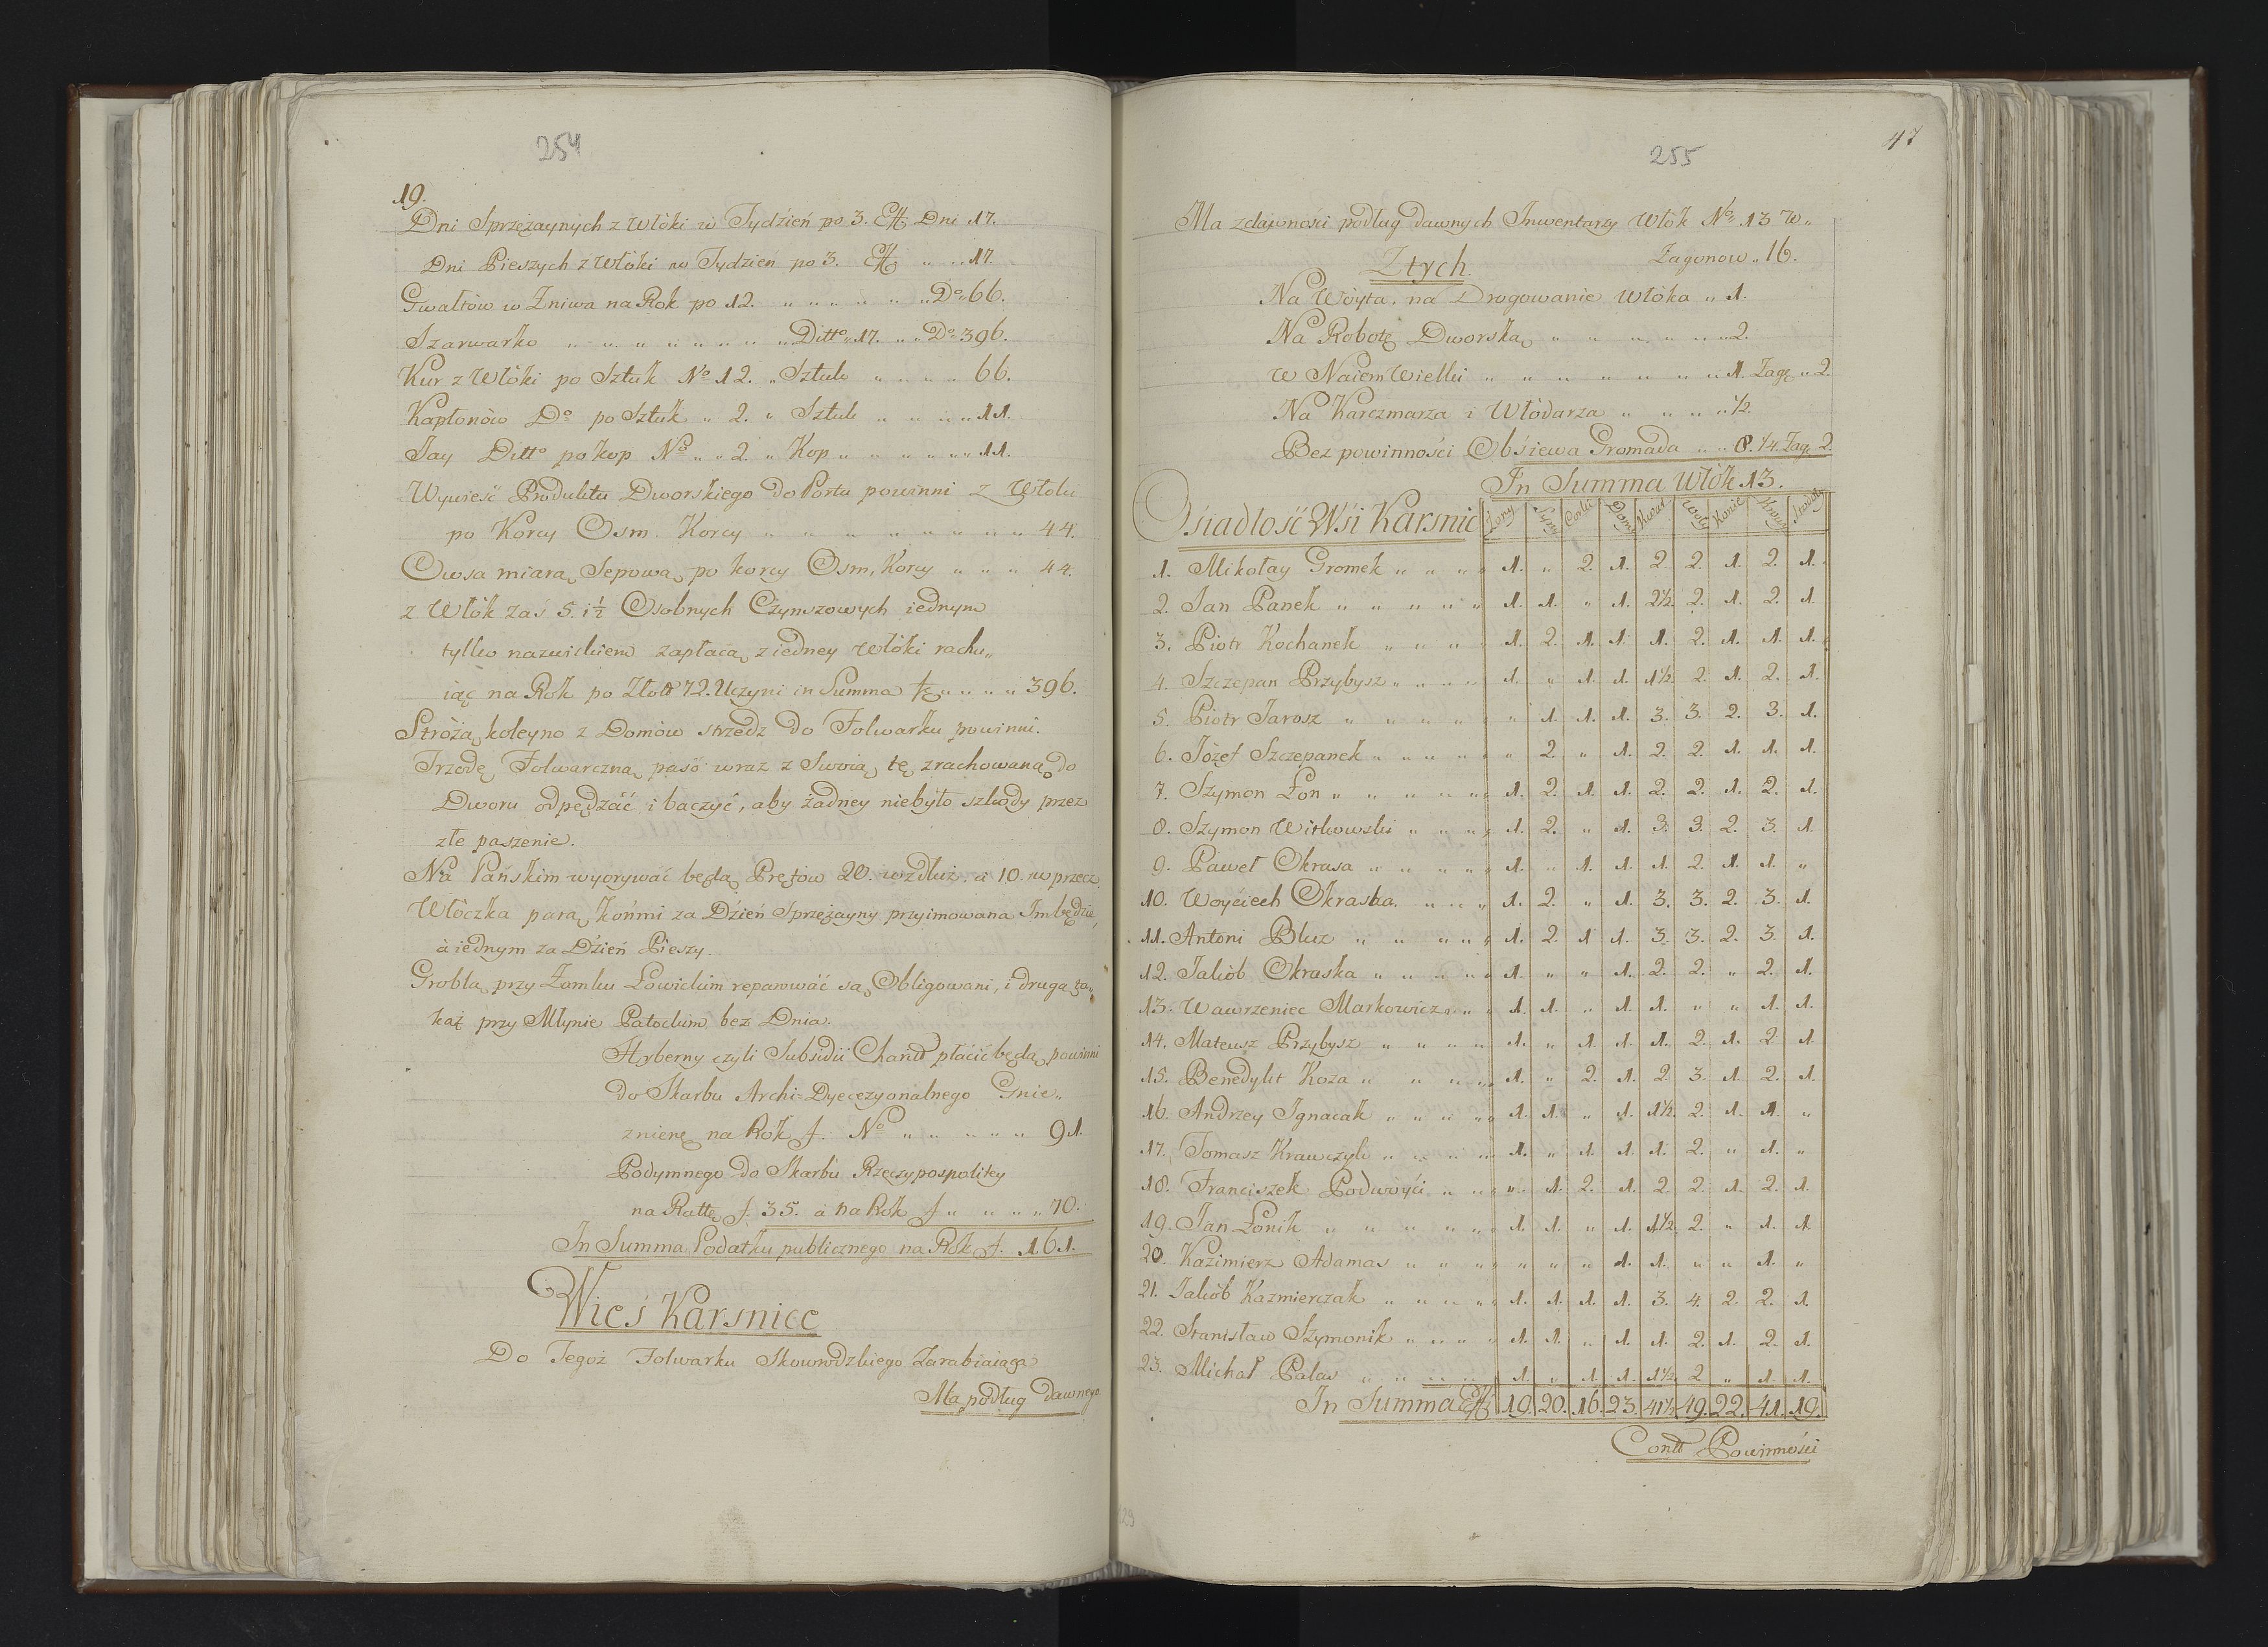 254
19.
Dni Sprzężaynych z Włóki w Tydzień po 3. Dni 17.
Dni Pieszych z Włóki na Tydzień po 3. „ „ 17.
Gwałtów w Żniwa na Rok po 12. „ „ „ „ „ „ Do „ 66.
Szarwarko „ „ „ „ „ „ „ „ Ditto „ 17. „ „ Do „ 396.
Kur z Włóki po Sztuk No 12. „ Sztuk „ „ „ „ 66.
Kapłonów Do po Sztuk „ 2. „ Sztuk „ „ „ „ 11.
Jay Ditto po kop No „ „ 2. „ Kop „ „ „ „ „ „ 11.
Wywieść Produktu Dworskiego do Portu powinni z Włoki
po Korcy Osm. Korcy „ „ „ „ „ „ „ „ 44.
Owsa miarą Sepową po korcy Osm, Korcy „ „ „ 44.
z Włók zaś 5. i ½ Osobnych Czynszowych iednym
tylko nazwiskiem zapłacą z iedney Włóki rachu„
iąc na Rok po Złott 72. Uczyni in Summa „ „ „ „ 396.
Stróżą koleyno z Domów strzedz do Folwarku powinni.
Trzodę Folwarczną paść wraz z Swoią tę zrachowaną do
Dworu odpędzáć i baczyć, aby żadney niebyło szkody przez
złe paszenie.
Na Pańskim wyorywać będą Prętów 20. wzdłuż. a 10. w przecz.
Włóczka parą końmi za Dźień Sprzężayny przyimowana Im będzie,
à iednym za Dźień Pieszy.
Groblą przy Zamku Łowickim reparować są Obligowani, i drugą ta„
każ przy Młynie Patockim bez Dnia.
Hyberny czyli Subsidii Charitt płácić będą powinni
do Skarbu Archi=Dyecezyonalnego Gnie„
znienę na Rok f. No „ „ „ „ „ 91.
Podymnego do Skarbu Rzeczypospolitey
na Rattę f. 35. à na Rok f „ „ „ „ 70.
In Summa Podatku publicznego na Rok f. 161.
Wieś Karsnice
Do Tegoż Folwarku Skowrodzkiego Zarabiaiąca
Ma podług dawnego
47
255
Ma zdawności podług dawnych Inwentarzy Włók No „ 13 w„
Zagonow „ 16.
Ztych
Na Wóyta, na Drogowanie Włóka „ 1.
Na Robotę Dworską „ „ „ „ „ „ 2.
W Naiem Wielki „ „ „ „ „ „ „ „ 1. Zagę „ 2.
Na Karczmarza i Włódarza „ „ „ „ ½.
Bez powinności Obśiewa Gromada „ „ 8. ¼. Zag. 2.
In Summa Włók 13.
Osiadłość Wśi Karsnic Żony Syny Córki Domy Kwart Woły Konie Krowy
1. Mikołay Gromek „ „ „ 1. „ 2. 1. 2. 2. 1. 2. 1.
2. Jan Panek „ „ „ „ „ 1. 1. „ 1. 2½. 2. 1. 2. 1.
3. Piotr Kochanek „ „ „ 1. 2. 1. 1. 1. 2. 1. 1. 1.
4. Szczepan Przybysz „ „ „ „ 1. „ 1. 1. 1½. 2. 1. 2. 1.
5. Piotr Jarosz „ „ „ „ „ „ 1. 1. 1. 3. 3. 2. 3. 1.
6. Józef Szczepanek „ „ „ „ „ 2 „ 1. 2. 2. 1. 1. 1.
7. Szymon Łon „ „ „ „ „ 1. 2. 1. 1. 2. 2. 1. 2. 1.
8. Szymon Witkowski „ „ „ 1. 2. „ 1. 3. 3. 2. 3. 1.
9. Paweł Okrasa „ „ „ „ „ 1. „ 1. 1. 1. 2. 1. 1. „
10. Woyćiech Okraska. „ „ „ 1. 2. „ 1. 3. 3. 2. 3. 1.
11. Antoni Bluz „ „ „ „ „ 1. 2. 1 1. 3. 3. 2. 3. 1.
12. Jakób Okraska „ „ „ „ 1. „ „ 1. 2. 2. „ 2. 1.
13. Wawrzeniec Markowicz „ „ 1. 1. „ 1. 1. „ „ 1. 1.
14. Mateusz Przybysz „ „ „ „ 1. „ 1. 1. 1. 2. 1. 2. 1
15. Benedykt Koza „ „ „ „ 1. „ 2. 1. 2. 3. 1. 2. 1.
16. Andrzey Ignacak „ „ „ „ 1. 1. „ 1. 1½. 2. 1. 1. „
17. Tomasz Krawczyk „ „ „ „ 1. „ 1. 1. 1. 2. „ 1. „
18. Franciszek Podwóyći „ „ „ „ 1. 2. 1. 2. 2. 1. 2. 1.
19. Jan Łonik „ „ „ „ „ „ 1. 1. „ 1. 1½. 2. „ 1. 1.
20. Kazimierz Adamas „ „ „ „ „ „ 1. 1. „ „ 1. „
21. Jakób Kazmierczak „ „ „ „ 1. 1. 1. 1. 3. 4. 2. 2. 1.
22. Stanisław Szymonik „ „ „ „ 1. 1. „ 1. 1. 2. 1. 2. 1.
23. Michał Palas „ „ „ „ „ 1. „ 1. 1. 1½. 2 „ 1. 1.
In Summa 19. 20. 16. 23. 41½. 49. 22. 41. 19.
Contt Powinności